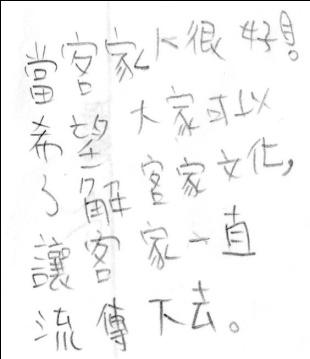 當客家人很好!
希望大家可以
了解客家文化,
讓客家一直
流傳下去。